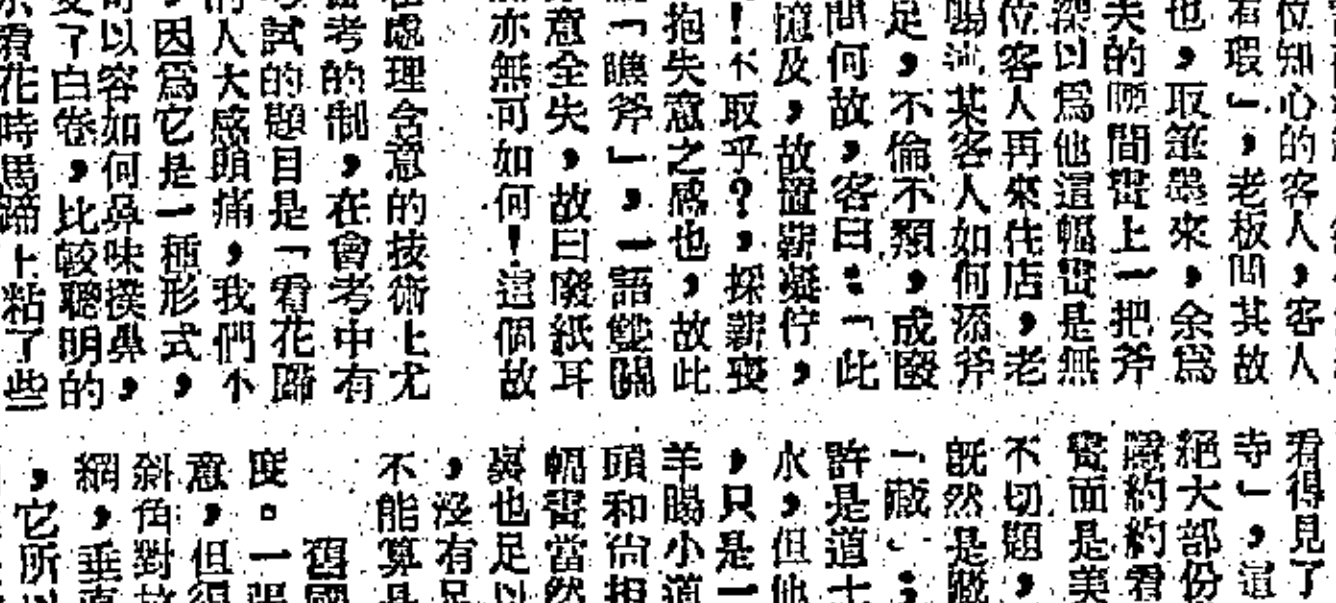 位知心的客人，客人
有瑕」，老板問其故
也，取筆墨來，余爲
夫的腰間畫上一把斧
深以爲他這幅畫是無
位客人再來住店，老
某客人如何添斧
足，不倫不類，成廢
問何故，客曰：「此
憶及，故置薪凝佇，
！不取乎？，採薪喪
抱失意之感也，故此
「瞧斧」，一語雙關
意全失，故曰廢紙耳
亦無可如何！這個故
處理含意的技術上尤
考的制，在會考中有
試的題目是「看花歸
人大感頭痛，我們不
，因爲它是一種形式，
以容如何鼻味撲鼻，
了白卷，比較聰明的
看花時馬蹄上粘了些
看得見了
寺」，這
絕大部份
隱約約看
畫面是美
不切題，
既然是藏
「藏」；
許是道士
水，但他
，只是一
羊腸小道
頭和尚担
幅畫當然
與也足以
，沒有足
不能算是
舊國
度。一張
意，但得
斜角對故
網，垂直
，它所以